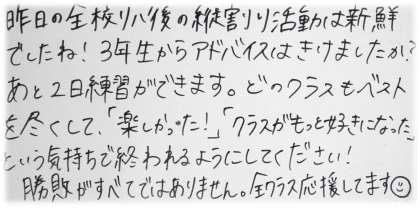 昨日の全校リハ後の縦割り活動は新鮮
でしたね!3年生からアドバイスはきけましたか?
あと2日練習ができます。どのクラスもベスト
を尽くして、「楽しかった!」「クラスがもっと好きになった」
という気持ちで終われるようにしてください!
勝敗がすべてではありません。全クラス応援してます☺